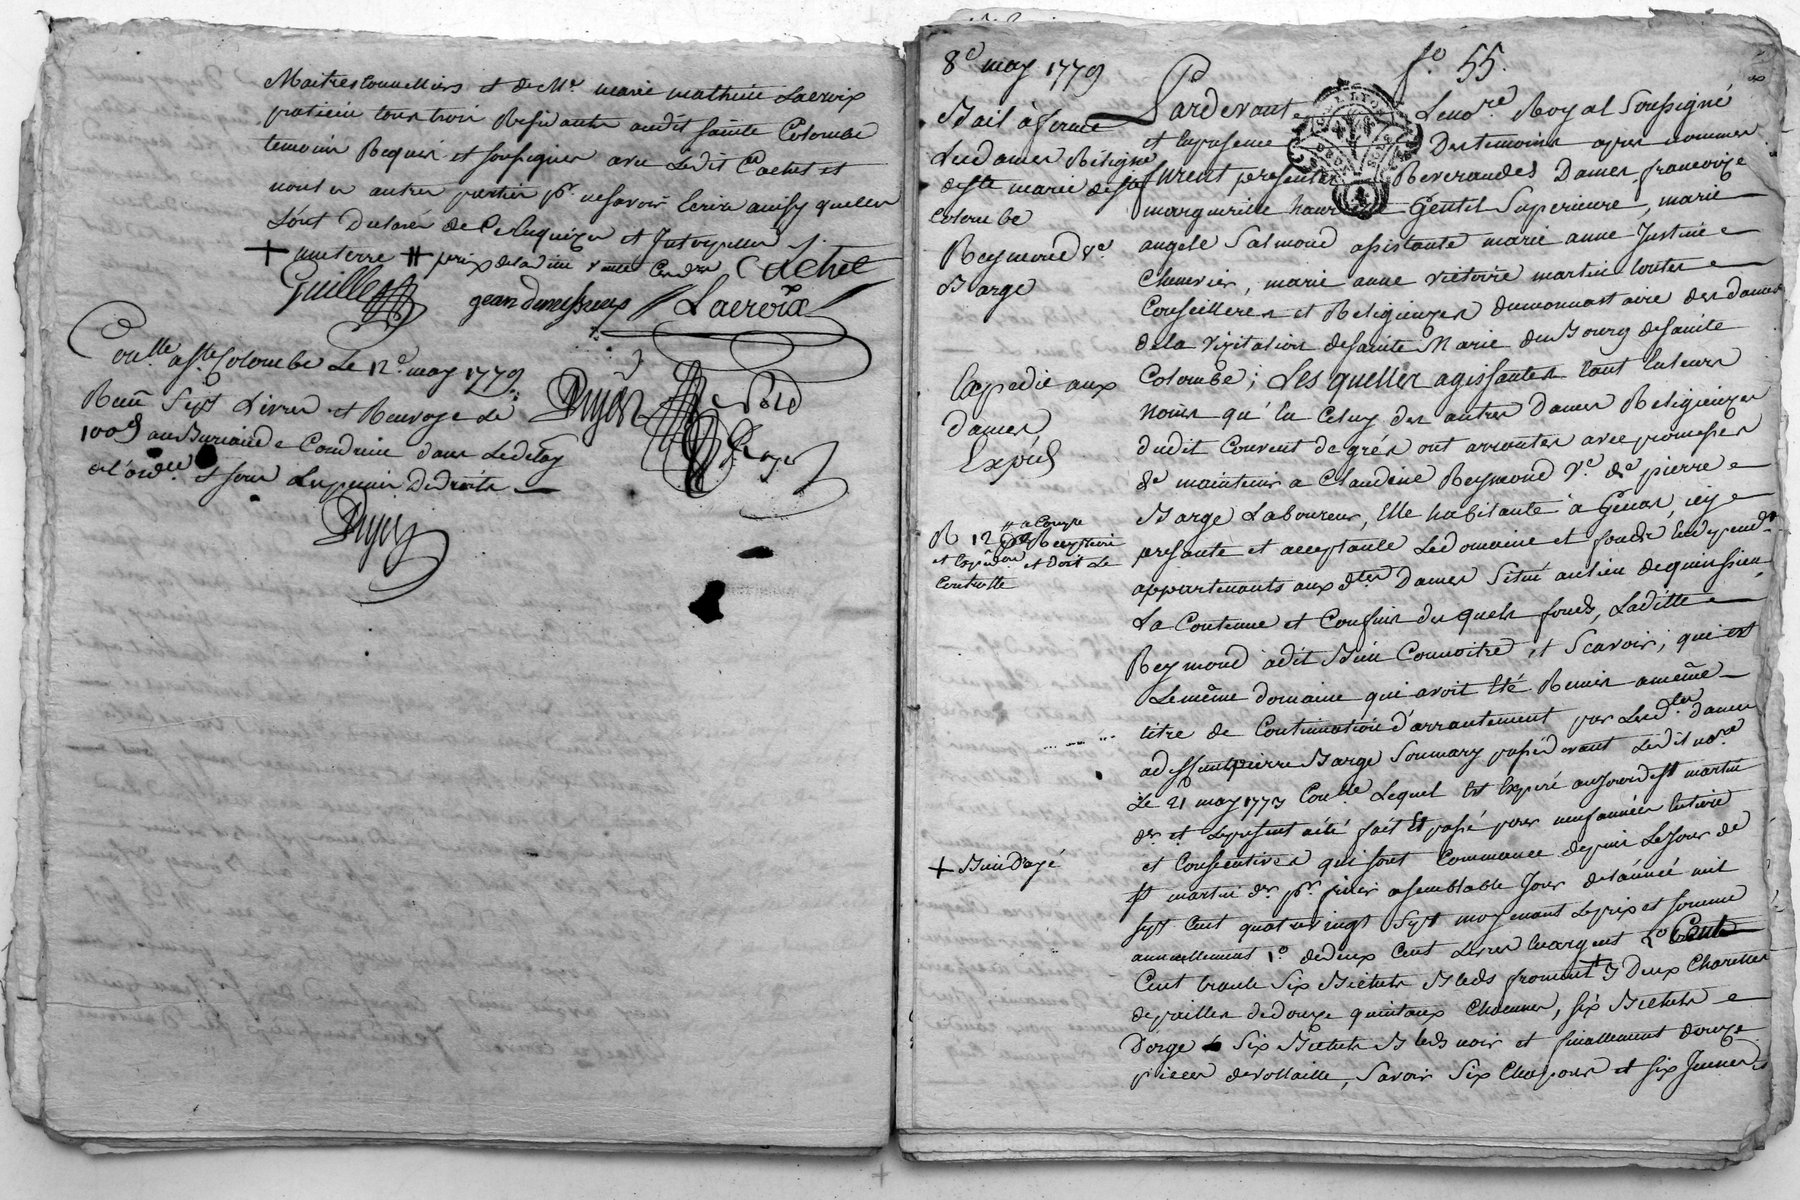 Maitres tonnelliers et de Me. marie mathieu Lacroix
praticien tous trois Residants audit sainte Colombe
temoins Requis et soussignes avec Ledit Sr. Cachet et
non les autres parties pr. ne savoir Ecrire ainsy quelles
L'ont Declaré de ce Enquises et Interpellées
+ une terre # prix de la
Cachet
Guillel
Lacroix
Conlle. a Ste. Colombe Le 12e. may 1779
Reçu Sept Livres et Renvoyé Le
100d au Bureau de Condrieu dans Le delay
de l'ordce. et sous Les peines De droits
8e may 1779
fo. 55.
Bail à ferme
Les dames Religses
de ste marie de ste
Colombe
Reymond ve.
Barge
Expedié aux
dames
Expié
R 12
Controlle
+ Bien Payé
Pardevant Le nore. Royal Soussigné
et en presence Des temoins apres nommes
furent presentes Reverandes Dames francoize
marguerite Gentet Superieure, marie
angele Salmond assistante marie anne Justine
Chenevier, marie anne victoire martin toutes
Conseilleres et Religieuzes du monnastaire des dames
de la Vizitation de Sainte Marie du Bourg de sainte
Colombe; Les quelles agissantes tant en leurs
noms qu'en Celuy des autres Dames Religieuzes
dudit Couvent de grés ont arrentés avec promesses
de maintenir a Claudine Reymond Ve. de pierre
Barge Laboureur, Elle habitante à Genas, icy
presante et acceptante Le domaine et fonds En dépends.
appartenants aux dtes Dames Situé au lieu de
La Contenue et Confins des quels fonds, Laditte
Reymond a dit Bien Connoitre et Scavoir, qui est
Le même domaine qui avoit Eté Remis a même
titre de Continuation d'arrantement par Lesdtes dames
ad. pierre Barge Son mary passé devant Ledit nore.
Le 21 may 1773 Conlle Lequel Est Expiré au jour de St martin
der. et Le present a été fait Et passé pour neuf années Entiere
et Consecutives qui sont Commancé depuis Le Jour de
St martin der. pr. finir a semblable Jour de l'année mil
sept cent quatrevingt Sept moyenant Le prix et somme
annuellement 1o. de deux Cent Livres En argent 2o
Cent trante Six Bichets Bleds froment + 3 Deux Charettes
de pailles de douze quintaux Chacunes, six Bichets
D'orge Six Bichets Bleds noir et finallement douze
pieces de vollaille, Savoir Six Chapons et six Jeunes